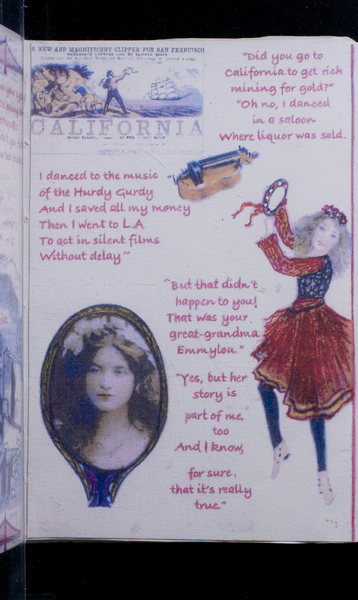 A NEW AND MAGNIFICENT CLIPPER FOR SAN FRANCISCO
CALIFORNIA
"Did you go to
California to get rich
mining for gold?"
"Oh no, I danced
in a saloon
Where liquor was sold.
I danced to the music
of the Hurdy Gurdy
And I saved all my money
Then I went to L.A
To act in silent films
Without delay"
"But that didn't
happen to you!
That was your
great-grandma
Emmylou."
"Yes, but her
story is
part of me,
too
And I know,
for sure,
that it's really
true"